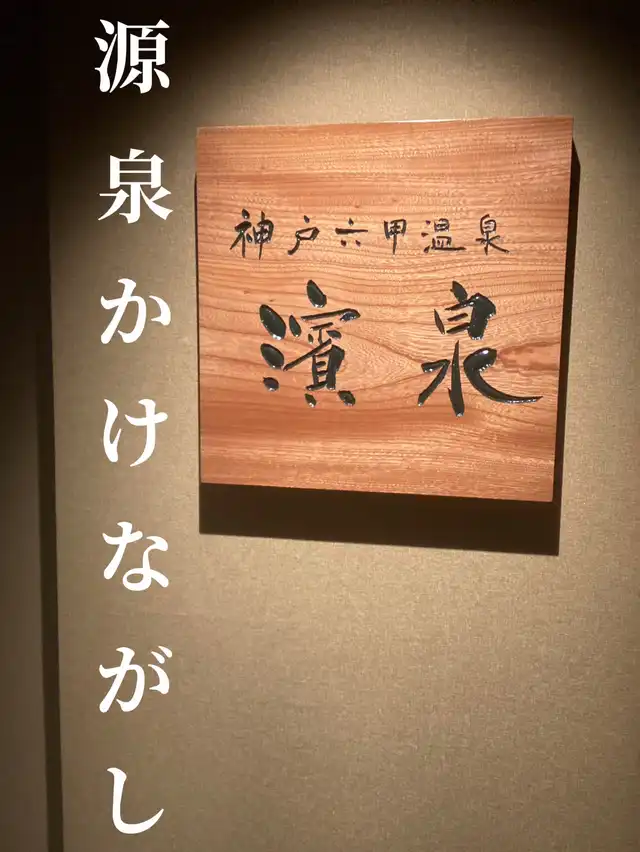 源泉かけながし
神戸六甲温泉
濱泉